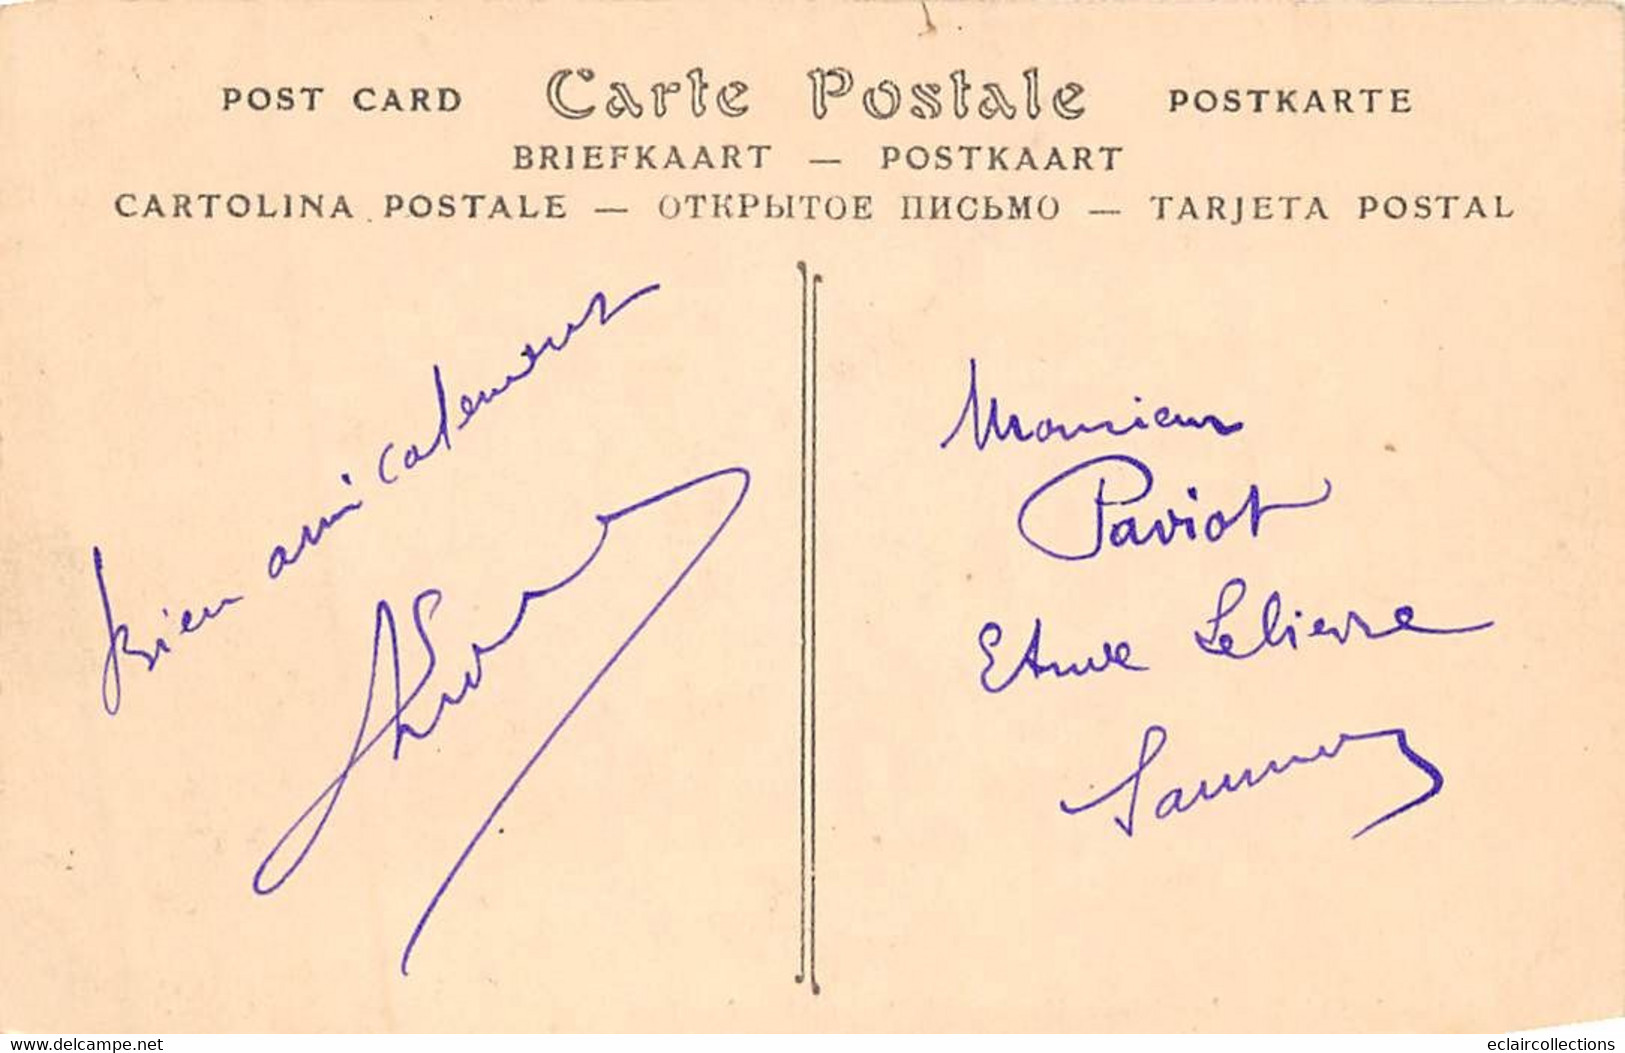 POST CARD Carte Postale POSTKARTE
BRIEFKAART — POSTKAART
CARTOLINA POSTALE — ОТКРЫТОЕ ПИСЬМО — TARJETA POSTAL
Bien amicalement
Monsieur
Paviot
Etude Lelievre
Saumur
www.delcampe.net
eclaircollections